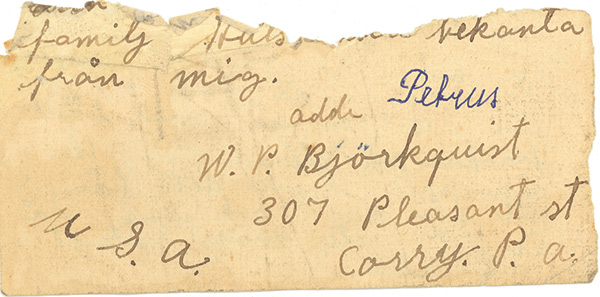 familj bekanta
från mig.
Petrus
addr
W. P. Björkquist
307 Pleasant st
U. S. A.
Corry. P. a.